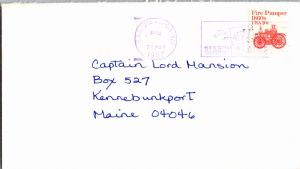 PM
Fire Pumper
1860s
USA 20c
Captain Lord Mansion
Box 527
Kennebunkport
Maine 04046